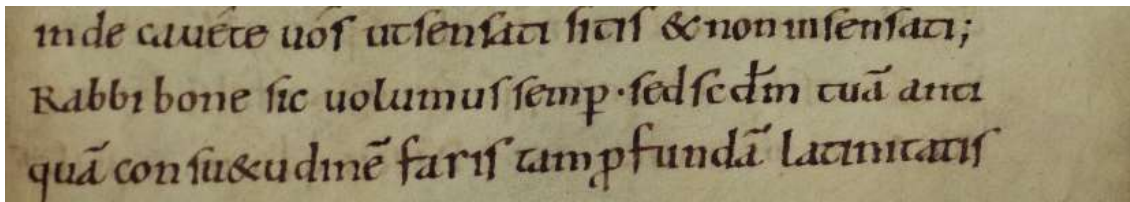 inde cauete uos ut sensati sitis & non insensati;
Rabbi bone sic uolumus semp · sed scdm tuā anti
quā consu&udinē faris tam ꝓfundā latinitatis